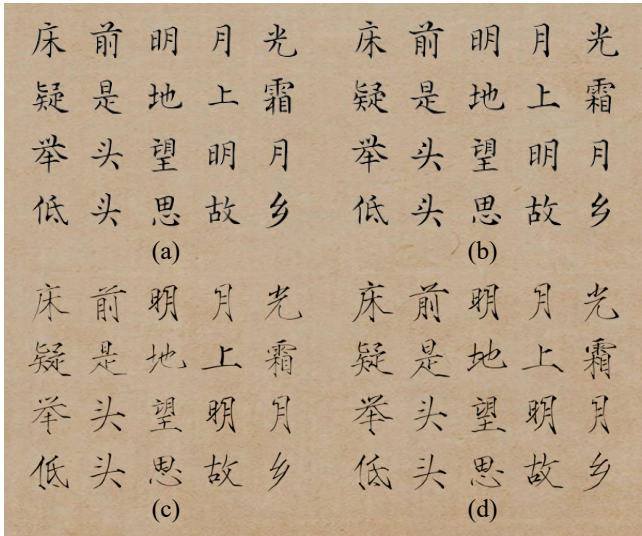 床前明月光
疑是地上霜
举头望明月
低头思故乡
(a)
床前明月光
疑是地上霜
举头望明月
低头思故乡
(b)
床前明月光
疑是地上霜
举头望明月
低头思故乡
(c)
床前明月光
疑是地上霜
举头望明月
低头思故乡
(d)